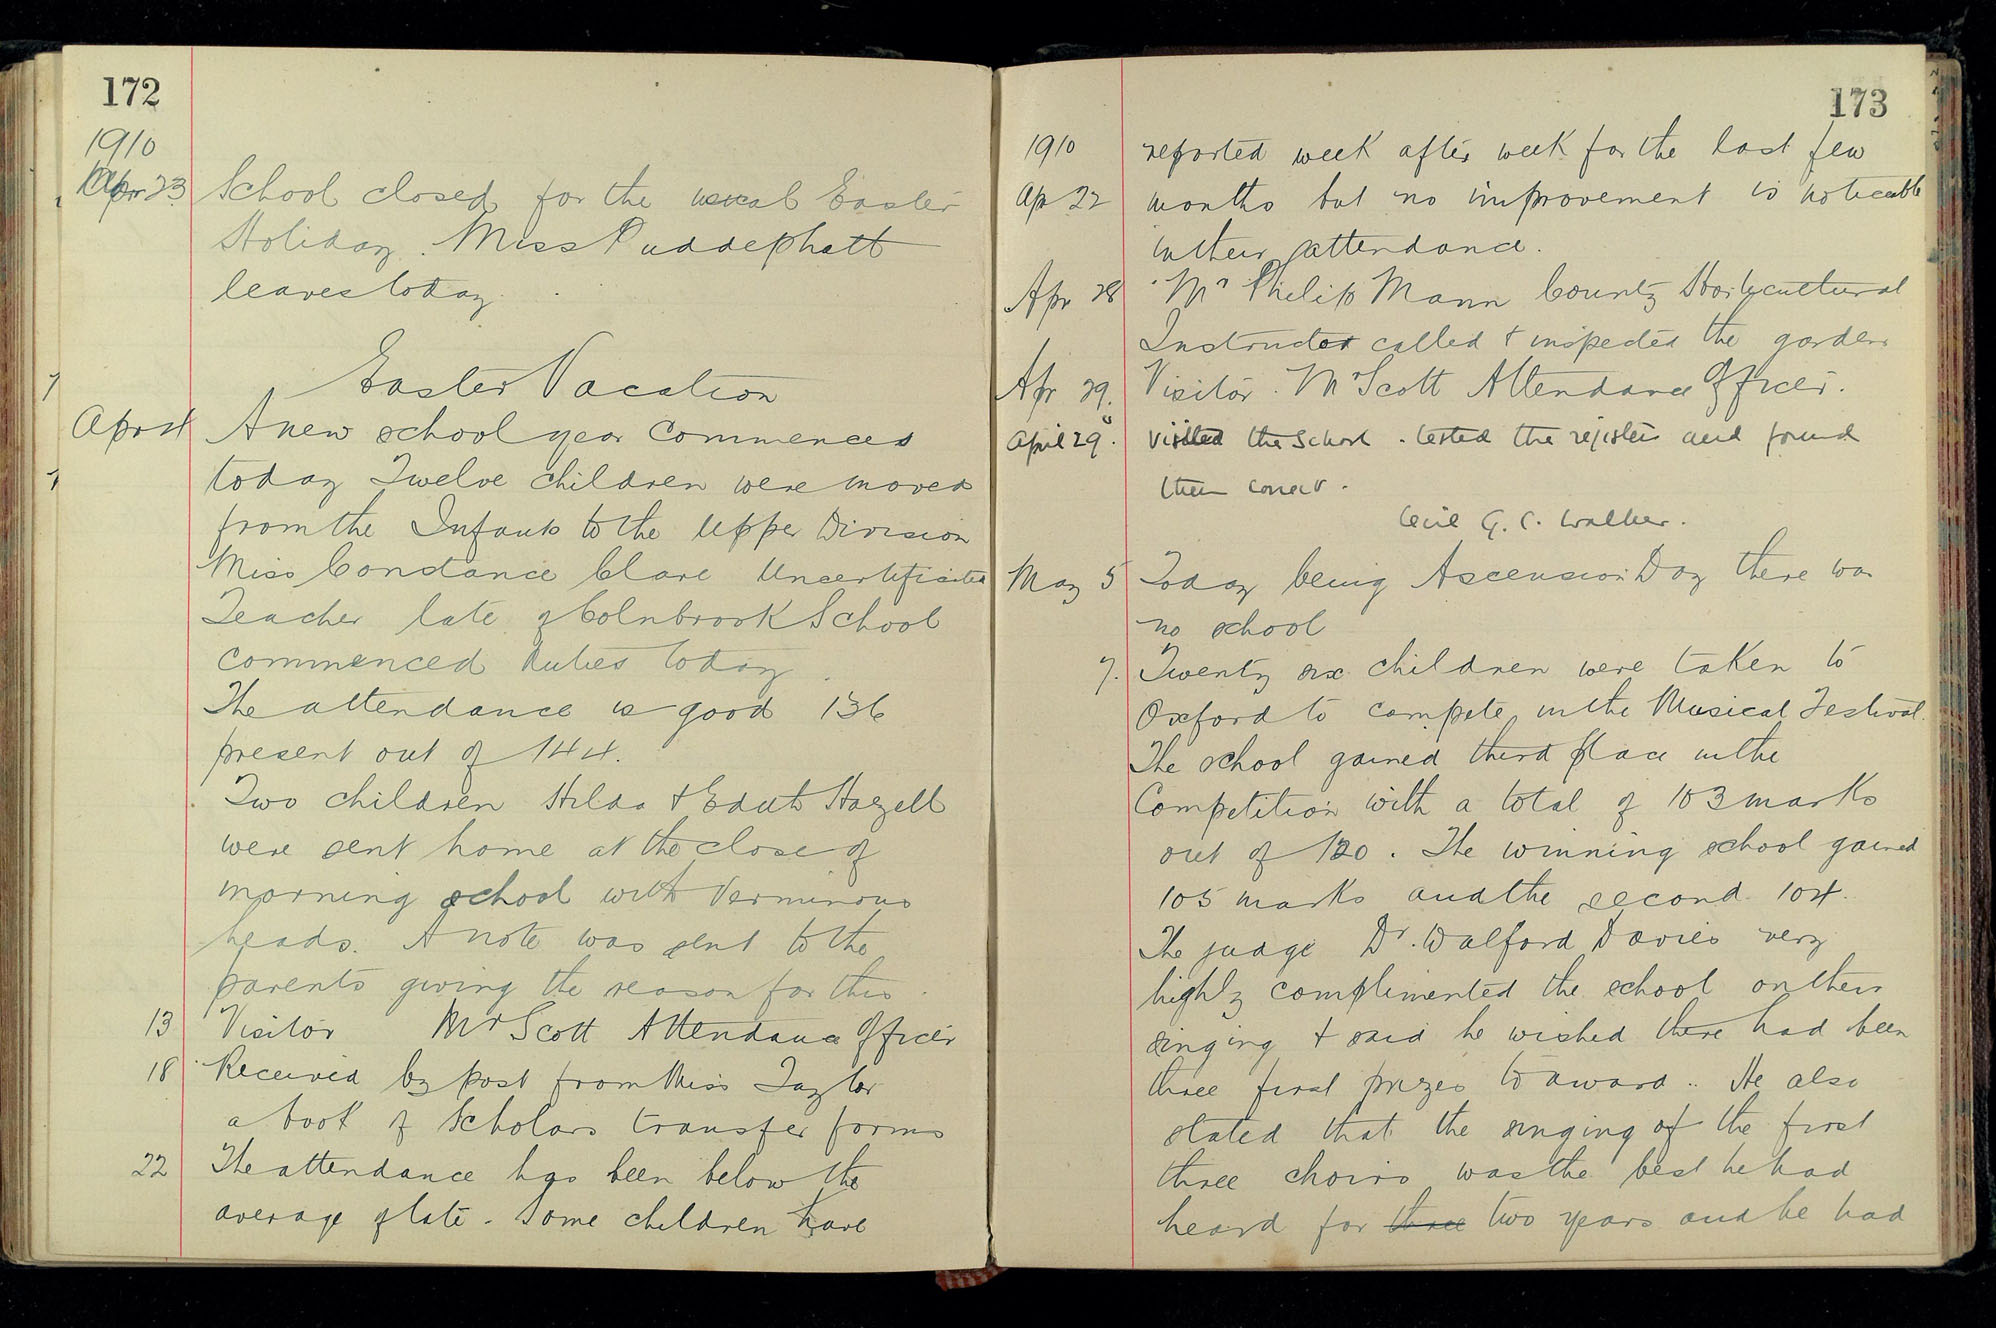 172
1910
Apr 23 School closed for the usual Easter
Holiday. Miss Puddephatt
leaves today.
Easter Vacation
Apr 4 A new school year commences
today Twelve children were moved
from the Infants to the Upper Division
Miss Constance Clare Uncertificated
Teacher late of Colnbrook School
commenced duties today.
The attendance is good 136
present out of 144.
Two children Hilda & Edith Hazell
were sent home at the close of
morning school with Verminous
heads. A note was sent to the
parents giving the reason for this.
13 Visitor Mr Scott Attendance Officer
18 Received by post from Miss Taylor
a book of Scholars transfer forms
22 The attendance has been below the
average of late. Some children have
173
1910 reported week after week for the last few
Ap 22 months but no improvement is noticeable
in their attendance.
Apr 28 Mr Philip Mann County Horticultural
Instructor called & inspected the garden
Apr 29. Visitor. Mr Scott Attendance Officer.
April 29. Visited the School. tested the registers and found
them correct.
Cecil G. C. Walker.
May 5 Today being Ascension Day there was
no school
7. Twenty six children were taken to
Oxford to compete in the Musical Festival.
The school gained third place in the
Competition with a total of 103 marks
out of 120. The winning school gained
105 marks and the second 104.
The judge Dr. Walford Davies very
highly complimented the school on their
singing & said he wished there had been
three first prizes to award.. He also
stated that the singing of the first
three choirs was the best he had
heard for three two years and he had